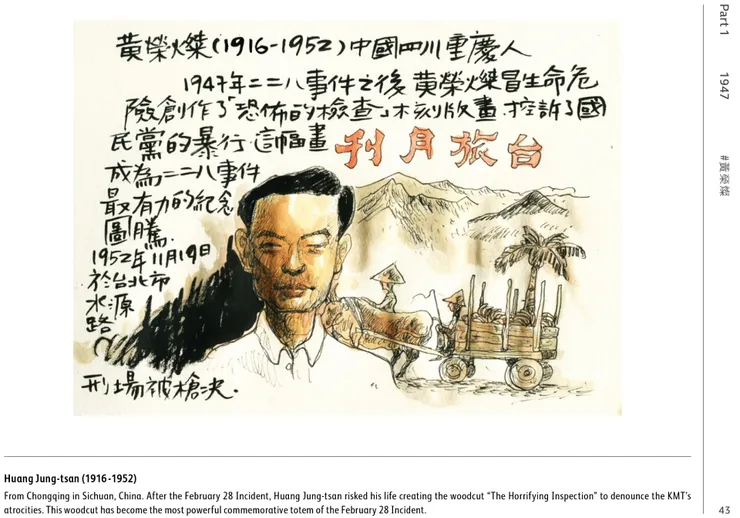 黃榮燦(1916-1952)中國四川重慶人
1947年二二八事件之後黃榮燦冒生命危
險創作了「恐怖的檢查」木刻版畫.控訴了國
民黨的暴行.這幅畫
刊月旅台
成為二二八事件
最有力的紀念
圖騰.
1952年11月19日
於台北市
水源
路
刑場被槍決.
Huang Jung-tsan (1916-1952)
From Chongqing in Sichuan, China. After the February 28 Incident, Huang Jung-tsan risked his life creating the woodcut “The Horrifying Inspection” to denounce the KMT’s
atrocities. This woodcut has become the most powerful commemorative totem of the February 28 Incident.
Part 1
1947
#黃榮燦
43